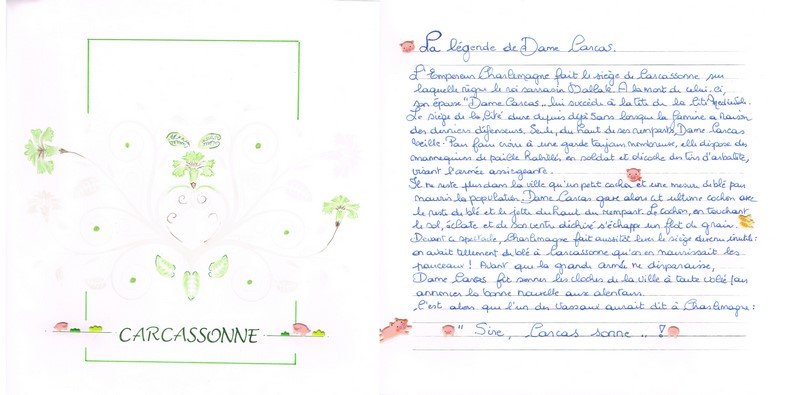 CARCASSONNE
La légende de Dame Carcas.
L'Empereur Charlemagne fait le siège de Carcassonne sur
laquelle règne le roi sarrasin Ballak. A la mort de celui-ci,
son épouse "Dame Carcas" lui succède à la tête de la Cité Médiévale.
Le siège de la Cité dure depuis déjà 5 ans lorsque la famine a raison
des derniers défenseurs. Seule, du haut de ses remparts, Dame Carcas
veille. Pour faire croire à une garde toujours nombreuse, elle dispose des
mannequins de paille habillés en soldat et décoche des tirs d'arbalète,
visant l'armée assiégeante.
Il ne reste plus dans la ville qu'un petit cochon et une mesure de blé pour
nourrir la population. Dame Carcas gave alors cet ultime cochon avec
le reste du blé et le jette du haut du rempart. Le cochon, en touchant
le sol, éclate et de son ventre déchiré s'échappe un flot de grain.
Devant ce spectacle, Charlemagne fait aussitôt lever le siège devenu inutile :
on avait tellement de blé à Carcassonne qu'on en nourrissait les
pourceaux ! Avant que la grande armée ne disparaisse,
Dame Carcas fit sonner les cloches de la ville à toute volée pour
annoncer la bonne nouvelle aux alentours.
C'est alors que l'un des vassaux aurait dit à Charlemagne :
"Sire, Carcas sonne .. !